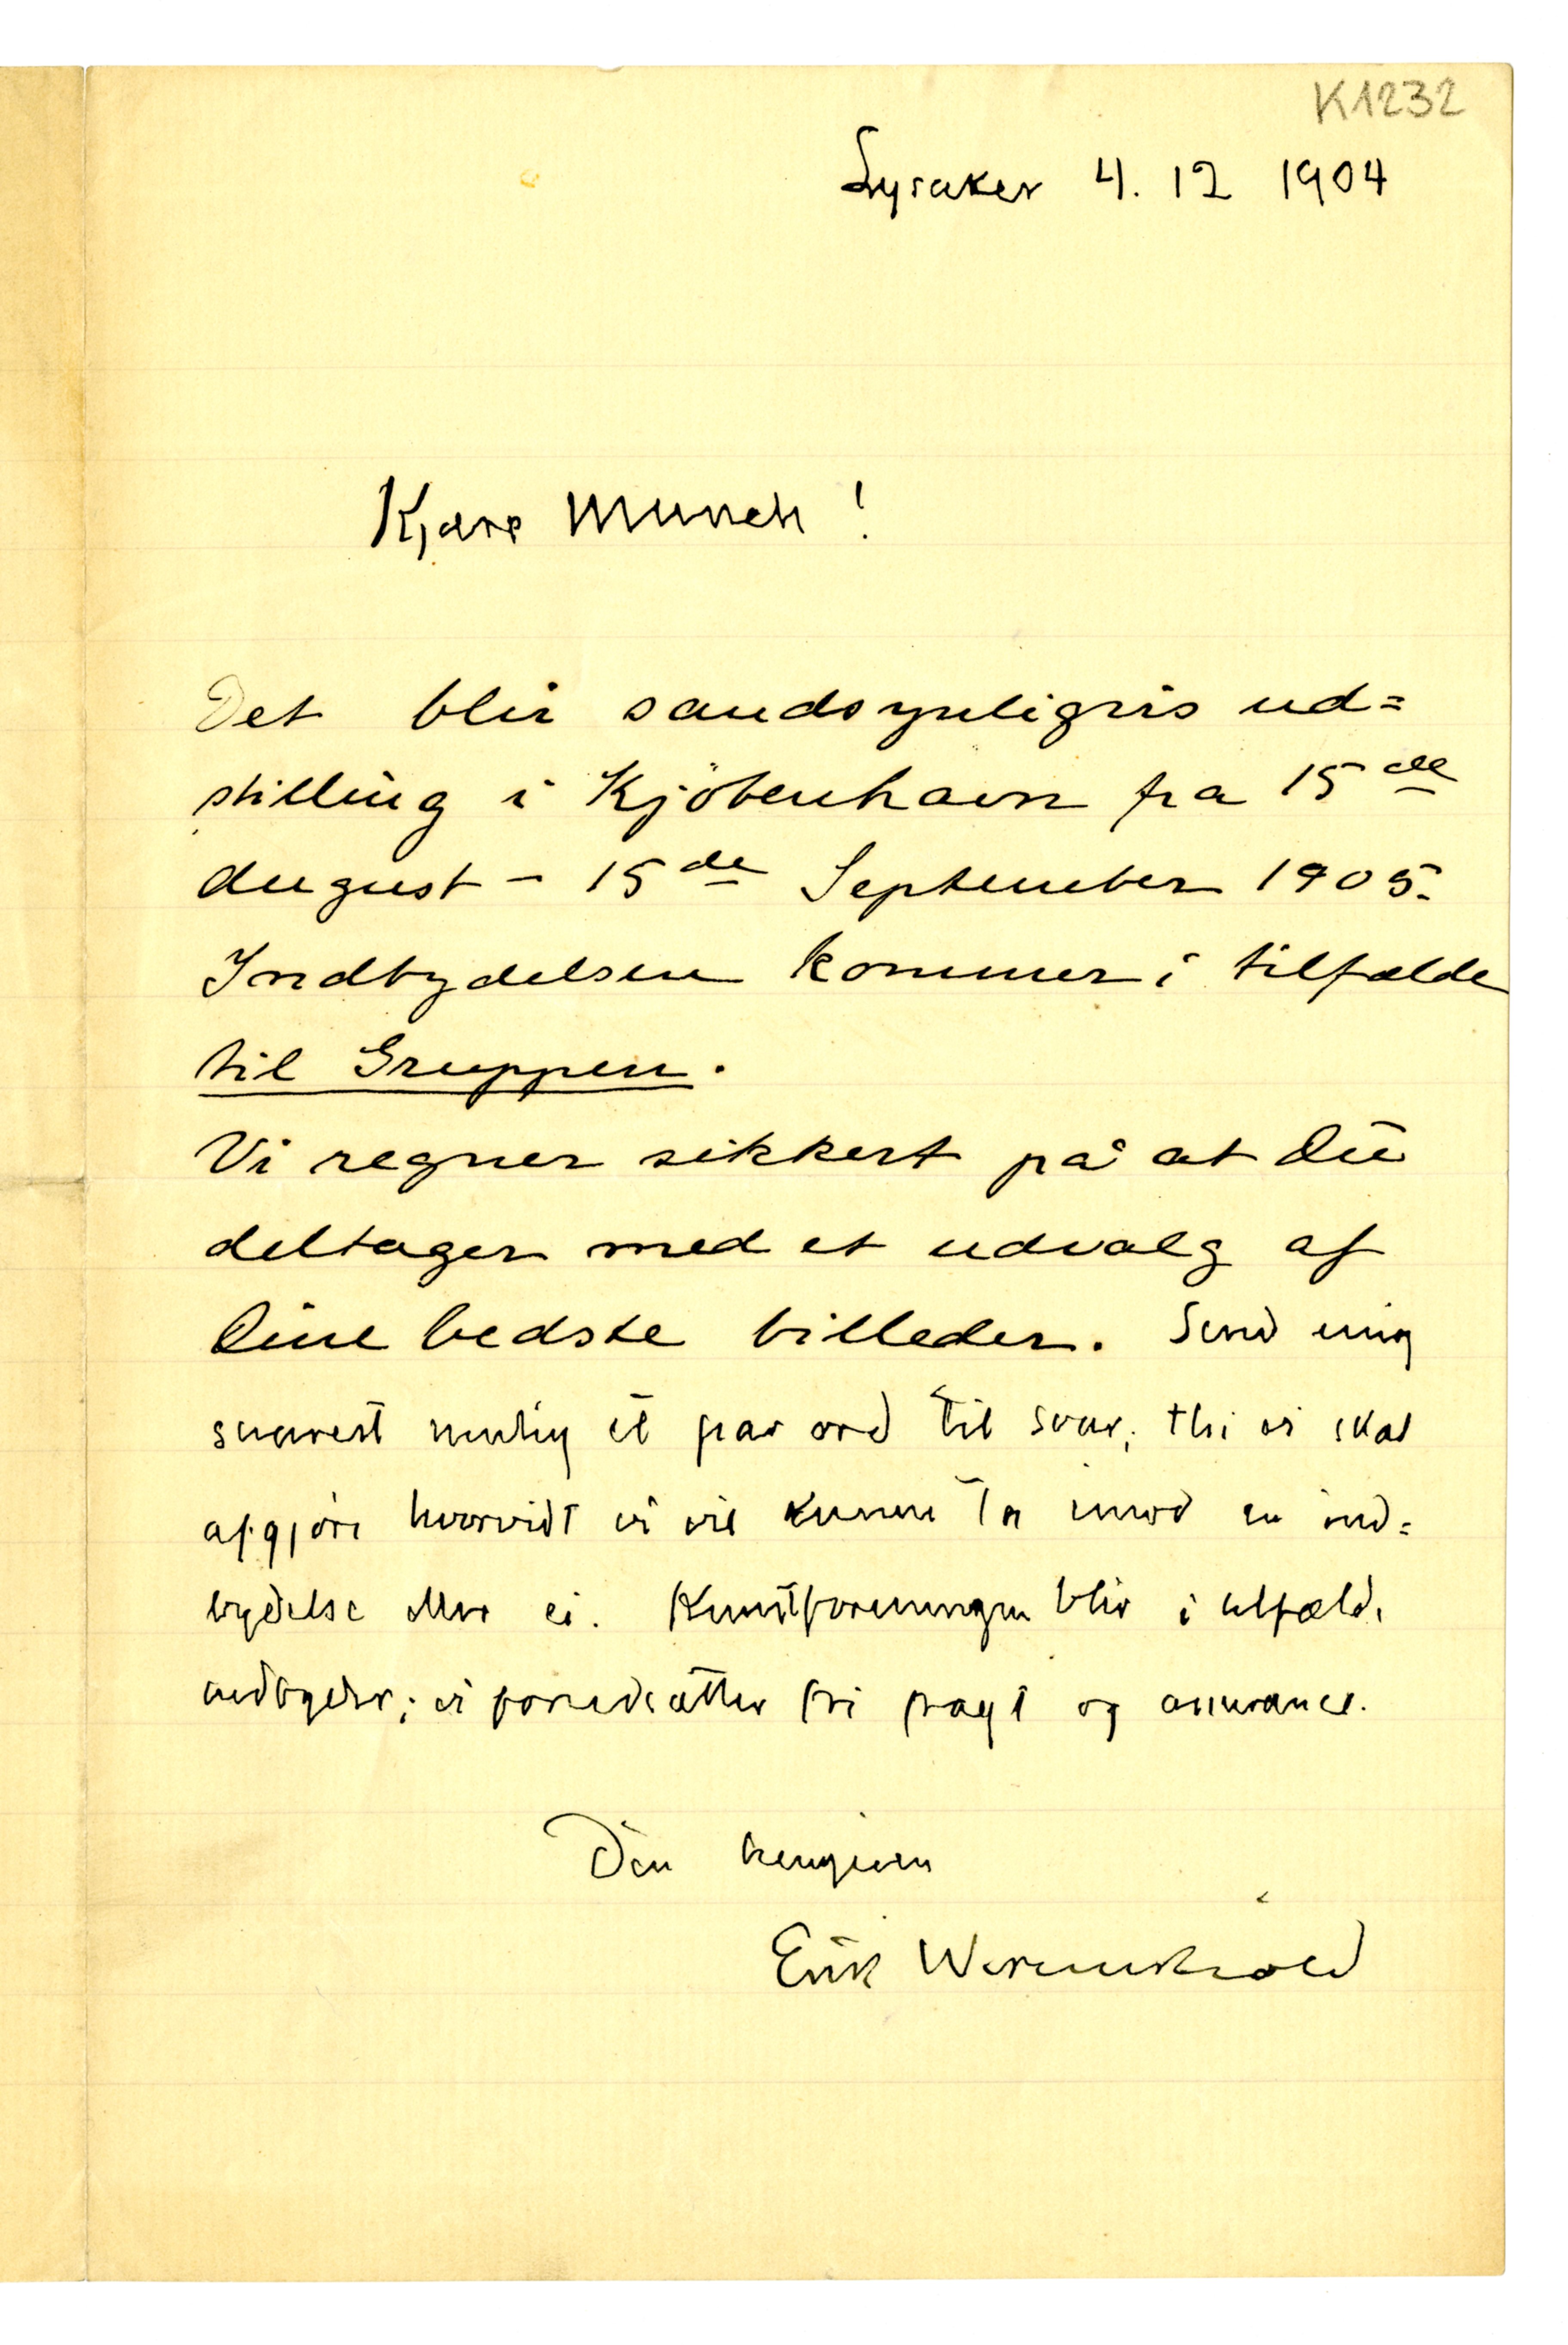 K1232
Lysaker 4. 12 1904
Kjære Munch!
Det blir sandsynligvis ud=
stilling i Kjöbenhavn fra 15de
August – 15de September 1905.
Indbydelsen kommer i tilfælde
til Gruppen.
Vi regner sikkert på at Du
deltager med et udvalg af
Dine bedste billeder. Send mig
snarest mulig et par ord til svar; thi vi skal
afgjöre hvorvidt vi vil kunne ta imod en ind=
bydelse eller ei. Kunstforeningen blir i tilfælde
indbyder; vi forudsætter fri fragt og assurance.
Din hengivne
Erik Werenskiold